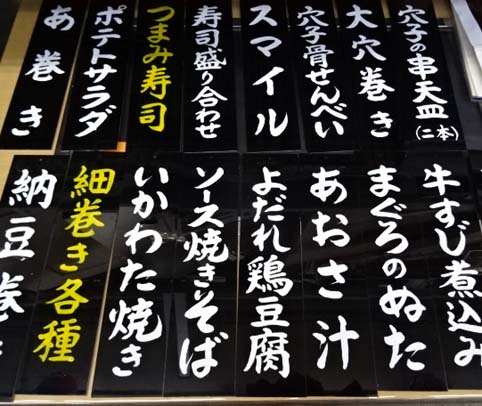 穴子の串天皿(二本)
大穴巻き
穴子骨せんべい
スマイル
寿司盛り合わせ
つまみ寿司
ポテトサラダ
あ巻き
牛すじ煮込み
まぐろのぬた
あおさ汁
よだれ鶏豆腐
ソース焼きそば
いかわた焼き
細巻き各種
納豆巻き